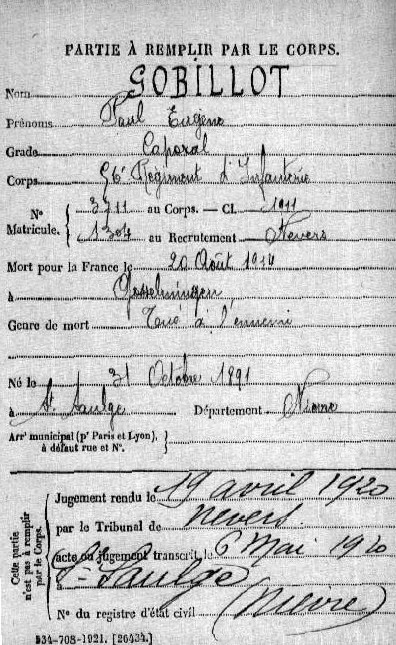 PARTIE À REMPLIR PAR LE CORPS.
Nom GOBILLOT
Prénoms Paul Eugène
Grade Caporal
Corps 56e Régiment d'Infanterie
N° Matricule. { 3711 au Corps. — Cl. 1911
1304 au Recrutement Nevers
Mort pour la France le 20 Août 1914
à Gosselmingen
Genre de mort Tué à l'ennemi
Né le 31 Octobre 1891
à St Saulge Département Nièvre
Arrt municipal (pr Paris et Lyon),
à défaut rue et N°.
Cette partie n'est pas à remplir par le Corps.
Jugement rendu le 19 avril 1920
par le Tribunal de Nevers
acte ou jugement transcrit le 6 Mai 1920
à St-Saulge
(Nièvre)
N° du registre d'état civil
534-708-1921. [26434.]